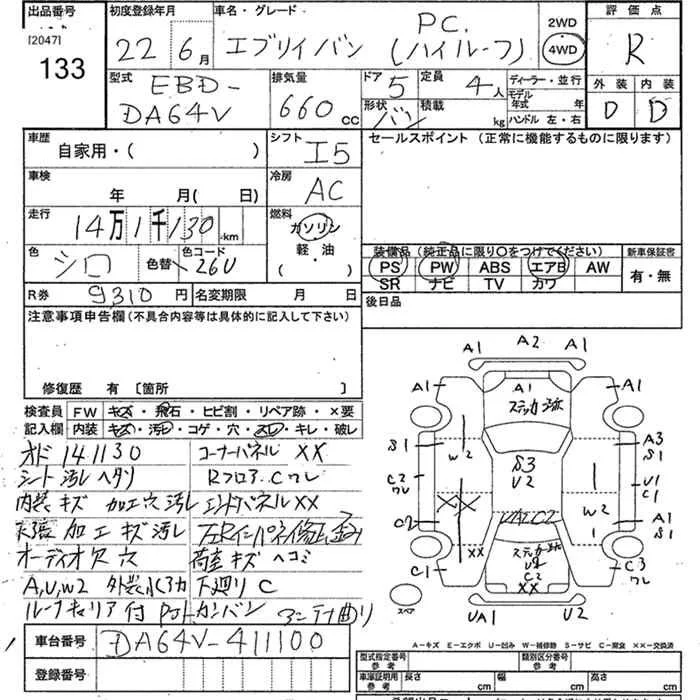 出品番号 初度登録年月 車名・グレード 評価点
[2047] 133
22年 6月 エブリイバン PC (ハイルーフ) 2WD 4WD R
型式 排気量 ドア 定員 ディーラー・並行 外装 内装
EBD-DA64V 660cc 5 4人 モデル年式 年 D D
形状 バン 積載 kg ハンドル 左・右
車歴 シフト セールスポイント (正常に機能するものに限ります)
自家用・( ) I5
車検 冷房
年 月( 日) AC
走行 燃料
14万1千130km ガソリン
軽・油
( )
色 色替 色コード
シロ 26U
装備品 (純正品に限り○をつけてください) 新車保証書
PS PW ABS エアB AW 有・無
SR ナビ TV カワ
R券 9310円 名変期限 月 日 後日品
注意事項申告欄 (不具合内容等は具体的に記入して下さい)
修復歴 有 〔箇所 〕
検査員 FW キズ・飛石・ヒビ割・リペア跡・×要
記入欄 内装 キズ・汚レ・コゲ・穴・スレ・キレ・破レ
オド 141130 コーナーパネル XX
シート汚レ ヘタリ Rフロア.Cワレ
内装キズ 加工穴 汚レ エンドパネルXX
天張 加工キズ汚レ 左Rインパネ修正歪み
オーディオ欠 穴 荷室キズ ヘコミ
A,U,W2 下廻り C
ルーフキャリア付 アンテナ曲り
車台番号 DA64V-411100
登録番号
A1 A2 A1
A1 A1 A1
ステッカー跡
S1 W2 S3 V2 A3 S1
C2 ワレ U1 C1
C2 W2 A1 S1
XX C2 XX
C1 C3 ワレ
スペア UA1 U2
A－キズ E－エクボ U－凹み W－補修跡 S－サビ C－腐食 XX－交換済
型式指定番号 参考 類別区分番号 参考
車庫証明用 参考 長さ cm 幅 cm 高さ cm